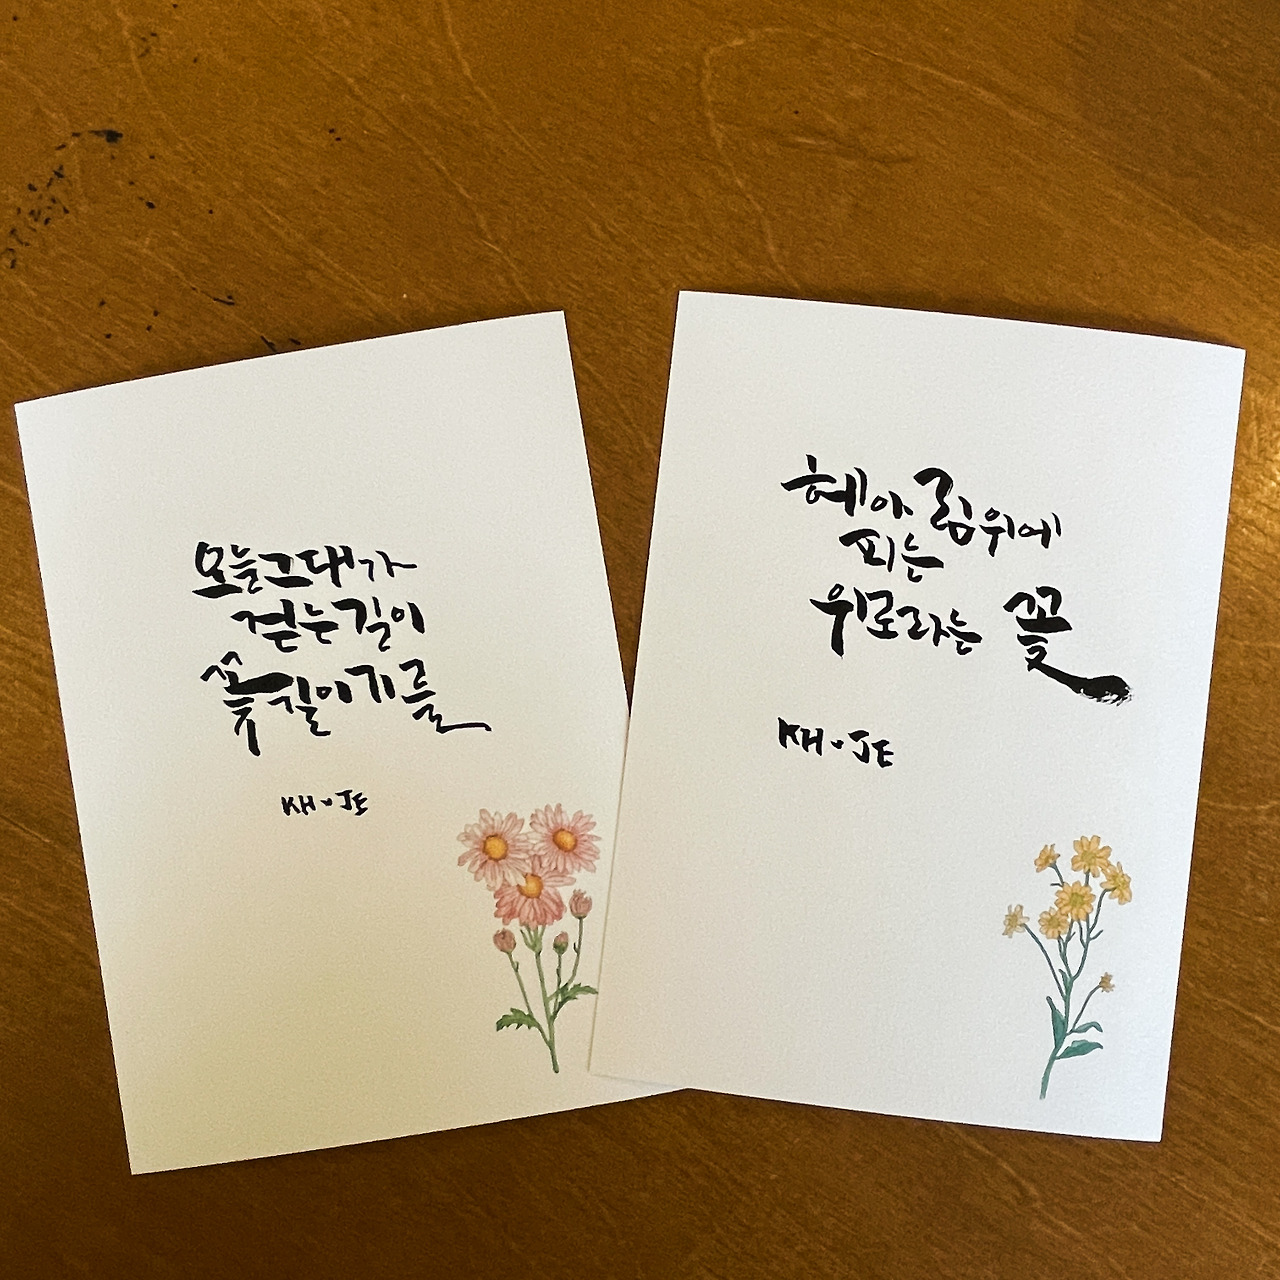 오늘 그대가
걷는 길이
꽃길이기를
KH JE
헤아림 위에
피는
위로라는 꽃
KH JE